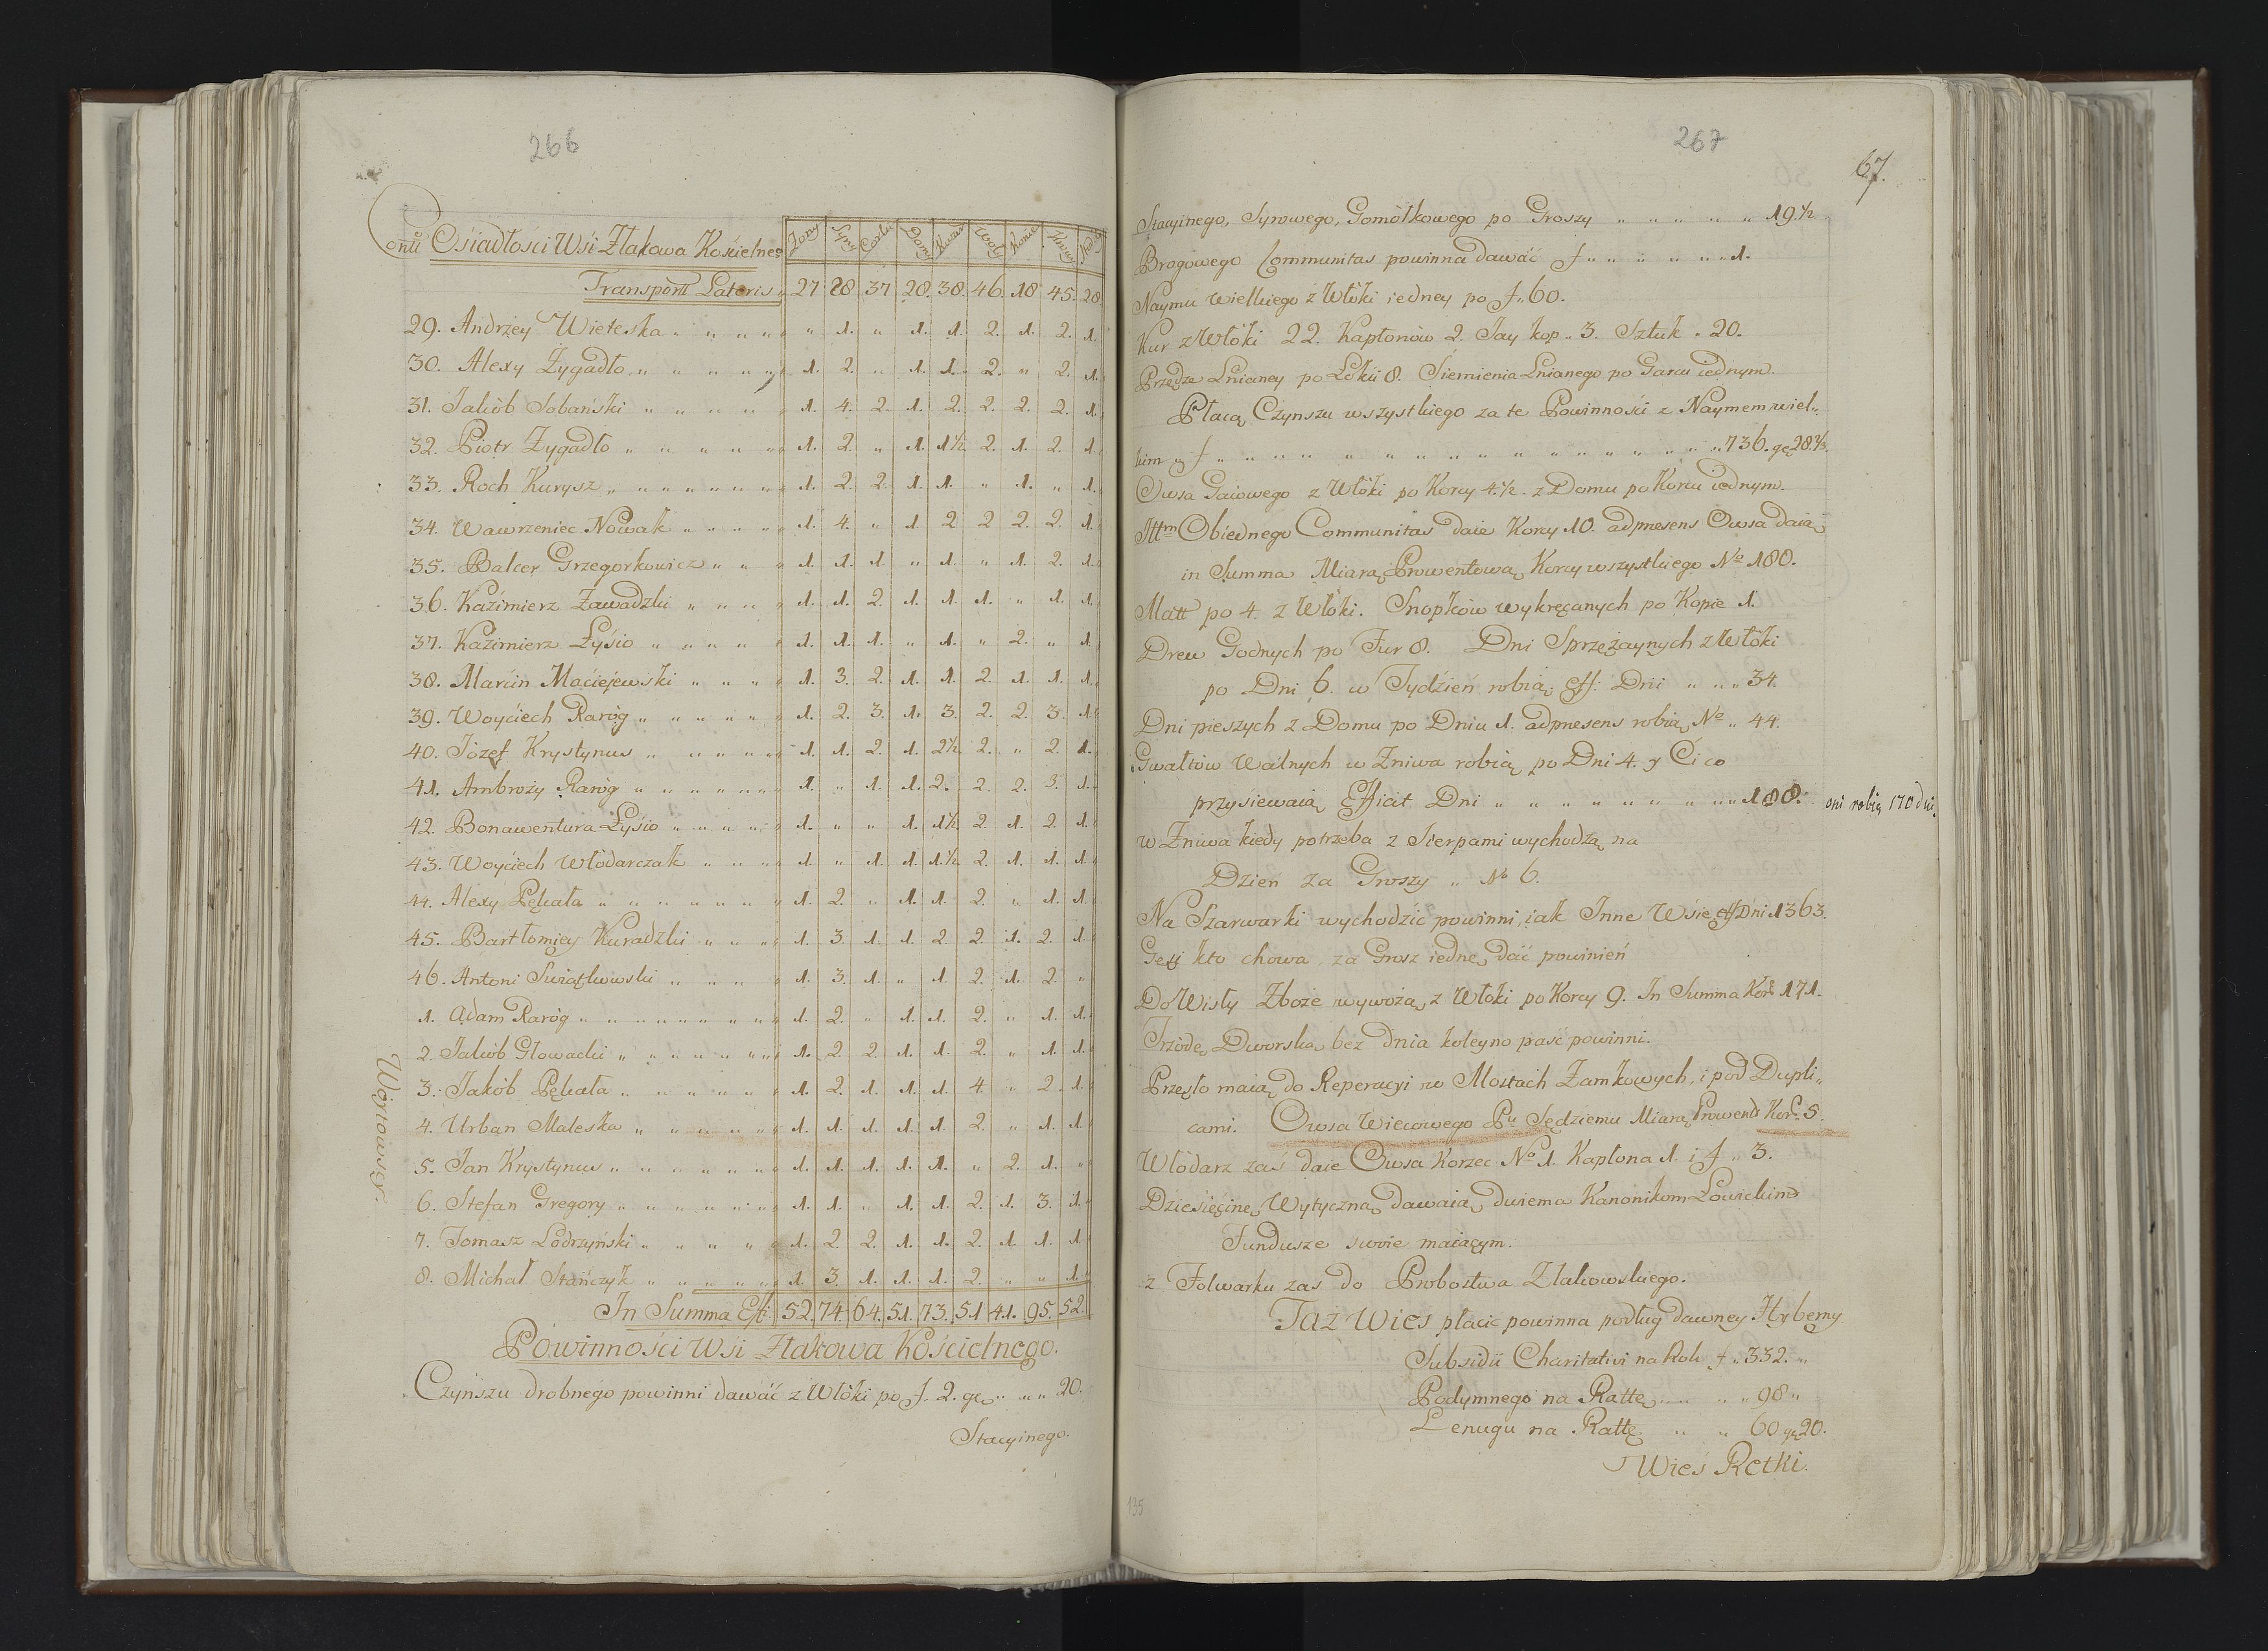 266
Onu Osiadłości Wsi Złakowa Kościelne° Zony Syny Corki Domy Kwar Woły Konie Krowy
Transport Lateris 27 28 37 28. 38. 46. 18 45. 28
29. Andrzey Wieteska „ „ „ „ „ 1. „ 1. 1. 2. 1. 2. 1.
30. Alexy Zygadło „ „ „ „ 1. 2. „ 1. 1. 2. „ 2. 1.
31. Jakób Sobański „ „ „ „ 1. 4. 2. 1. 2. 2. 2. 2. 1.
32. Piotr Zygadło „ „ „ „ 1. 2. „ 1. 1½ 2. 1. 2. 1.
33. Roch Kurysz „ „ „ „ 1. 2. 2. 1. 1. „ 1. „ 1.
34. Wawrzeniec Nowak „ „ „ „ 1. 4. „ 1 2 2 2. 2. 1.
35. Balcer Grzegorkowicz „ „ „ 1. 1. 1. „ 1. „ 1. 2. 1.
36. Kazimierz Zawadzki „ „ „ 1. 1. 2. 1. 1. 1. „ 1. 1.
37. Kazimierz Łysio „ „ „ „ 1. 1. 1. „ 1. „ 2. „ 1
38. Marcin Maciejewski „ „ „ 1. 3. 2. 1. 1. 2. 1. 1. 1.
39. Woyciech Raróg „ „ „ „ 1. 2. 3. 1. 3. 2. 2. 3. 1.
40. Józef Krystynus „ „ „ „ 1. 1. 2. 1. 2½ 2. „ 2. 1.
41. Ambroży Raróg „ „ „ „ 1. „ 1. 1. 2. 2. 2. 3. 1.
42. Bonawentura Łysio „ „ „ „ 1. „ „ 1. 1½ 2. 1. 2. 1.
43. Woyciech Włodarczak „ „ „ 1. „ 1. 1. 1.½ 2. 1. 1. 1.
44. Alexy Pękala „ „ „ „ 1. 2. „ 1. 1. 2. „ 1. 1.
45. Bartłomiey Kuradzki „ „ „ 1. 3. 1. 1. 2. 2. 1. 2. 1.
46. Antoni Swiątkowski „ „ „ 1. 3. 1. „ 1. 2. 1. 2. „
Wójtowscy.
1. Adam Raróg „ „ „ „ 1. 2. „ 1. 1. 2. „ 1. 1.
2. Jakób Głowacki „ „ „ „ 1. 2. 2. 1. 1. 2. „ 1. 1.
3. Jakób Pękala „ „ „ „ 1. 2. 1. 1. 1. 4. „ 2. 1.
4. Urban Maleska „ „ „ „ 1. 1. 1. 1. 1. 2. „ 1. 1.
5. Jan Krystynus „ „ „ „ 1. 1. 1. 1. 1. „ 2. 1. „
6. Stefan Gregory „ „ „ „ 1. 1. „ 1. 1. 2. 1. 3. 1.
7. Tomasz Lodrzyński „ „ „ 1. 2. 2. 1. 1. 2. 1. 1. 1
8. Michał Stańczyk „ „ „ „ 1. 3. 1. 1. 1. 2. „ „ 1.
In Summa Eff: 52. 74. 64. 51. 73. 51 41. 95. 52.
Powinności Wsi Złakowa Kościelnego.
Czynszu drobnego powinni dawać z Włóki po f. 2. gr „ „ 20.
Stacyinego.
267
67.
Stacyinego, Syrowego, Gomółkowego po Groszy „ „ „ „ „ 19.½
Brogowego Communitas powinna dawać f „ „ „ „ „ 1.
Naymu wielkiego z Włóki iedney po f. 60.
Kur z Włóki 22. Kapłonów 2. Jay kop. 3. Sztuk 20.
Przędze Lnianey po Łokci 8. Siemienia Lnianego po Garcu iednym.
Płacą Czynszu wszystkiego za te Powinności z Naymem wiel„
kim „ f „ „ „ „ „ „ „ „ „ „ „ 736. gr 28⅔
Owsa Gaiowego z Włóki po Korcy 4.½. z Domu po Korcu iednym.
Ittm Obiednego Communitas daie Korcy 10. adpresens Owsa daią
in Summa Miarą Prowentową Korcy wszystkiego No 180.
Matt po 4. z Włóki. Snopków wykręcanych po Kopie 1.
Drew Godnych po Fur 8. Dni Sprzężaynych z Włóki
po Dni 6. w Tydzień robią, Eff: Dni „ „ „ 34.
Dni pieszych z Domu po Dniu 1. adpresens robią No „ 44.
Gwałtów Walnych w Zniwa robią po Dni 4. y Ci co
przysiewaią Efficit Dni „ „ „ „ „ „ „ 188. oni robią 170 dni.
w Zniwa kiedy potrzeba z Sierpami wychodzą na
Dzień za Groszy „ No 6.
Na Szarwarki wychodzić powinni, iak Inne Wsie, eff Dni 1363.
Gęsi kto chowa, za Grosz iednę, dać powinień
Do Wisły Zboże wywożą, z Włóki po Korcy 9. In Summa Kor: 171.
Trzodę Dworską bez Dnia koleyno paść powinni.
Przęsło maią do Reperacyi w Mostach Zamkowych, i pod Dupli„
cami. Owsa Wiecowego Pu Sędziemu Miarą Prowent: Kor: 5.
Włodarz zaś daie Owsa Korzec No 1. Kapłona 1. i f „ 3.
Dziesięcinę, Wytyczną, dawaią, dwiema Kanonikom Łowickim
Fundusze swoie maiącym.
z Folwarku zas do Probostwa Złakowskiego.
Taz Wies płacic powinna podług dawney Hybemy
Subsidii Charitativi na Rok f „ 332. „
Podymnego na Rattę „ „ „ 98 „
Lenugu na Rattę „ „ 60 gr 20.
Wieś Retki.
135